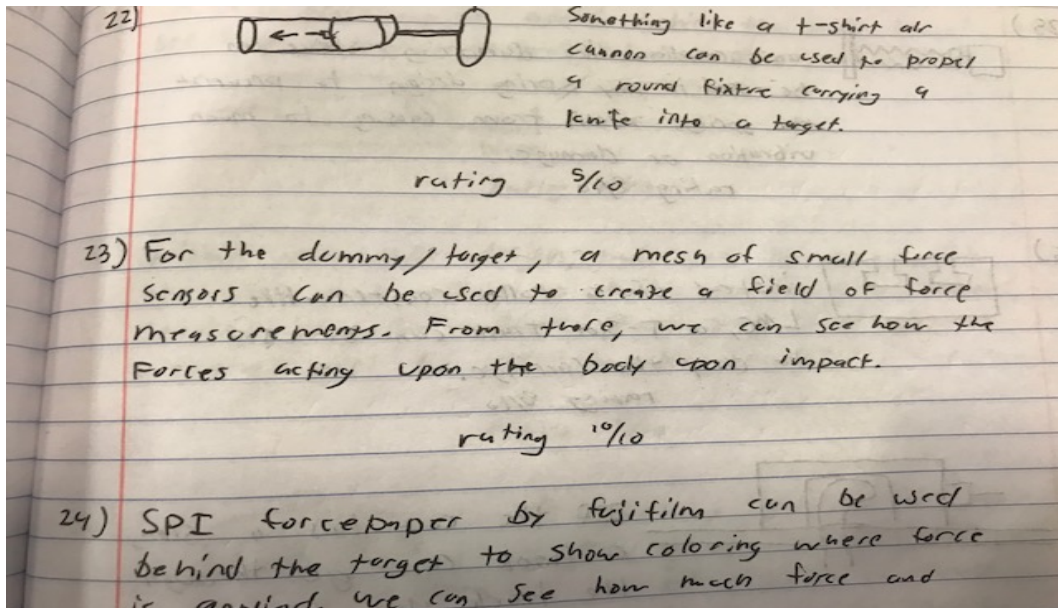 22)
Something like a t-shirt air
cannon can be used to propel
a round fixture carrying a
knife into a target.
rating 5/10
23) For the dummy/target, a mesh of small force
sensors can be used to create a field of force
measurements. From there, we can see how the
Forces acting upon the body upon impact.
rating 10/10
24) SPI forcepaper by fujifilm can be used
behind the target to show coloring where force
is applied. we can see how much force and